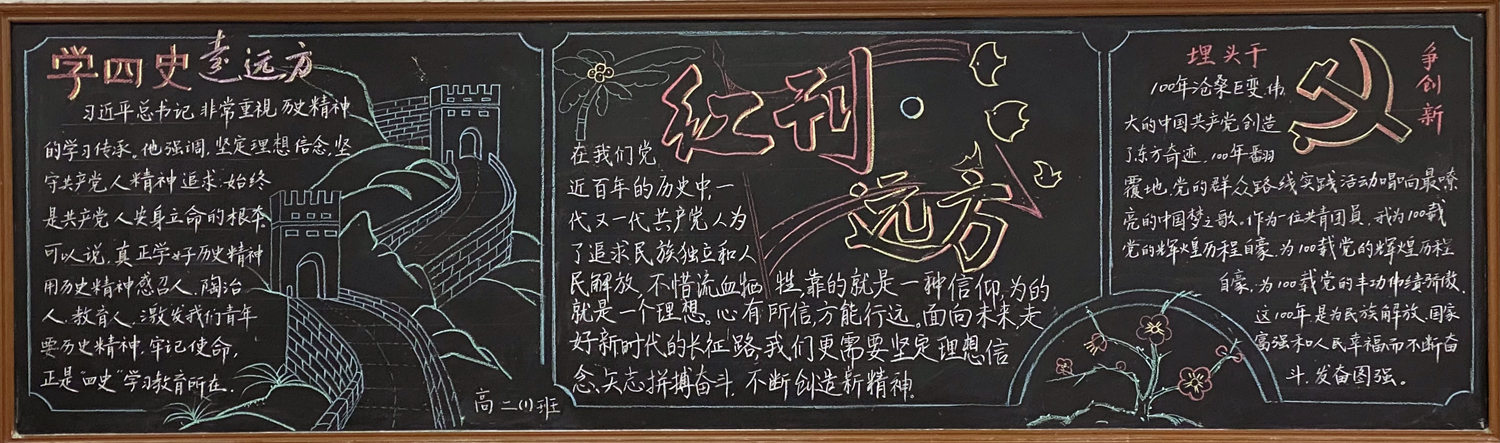 学四史 意远方
习近平总书记非常重视历史精神
的学习传承。他强调,坚定理想信念,坚
守共产党人精神追求,始终
是共产党人安身立命的根本
可以说,真正学好历史精神
用历史精神感召人、陶冶
人、教育人、激发我们青年
要历史精神,牢记使命,
正是“四史”学习教育所在。
高二(1)班
红刊
远方
在我们党
近百年的历史中,一
代又一代共产党人为
了追求民族独立和人
民解放,不惜流血牺牲,靠的就是一种信仰,为的
就是一个理想。心有所信,方能行远。面向未来,走
好新时代的长征路,我们更需要坚定理想信
念、矢志拼搏奋斗,不断创造新精神.
埋头干
争创新
100年沧桑巨变,伟
大的中国共产党创造
了东方奇迹,100年翻
覆地,党的群众路线实践活动唱响最嘹
亮的中国梦之歌。作为一位共青团员,我为100载
党的辉煌历程自豪,为100载党的辉煌历程
自豪,为100载党的丰功伟绩骄傲,
这100年,是为民族解放、国家
富强和人民幸福而不断奋
斗,发奋图强。